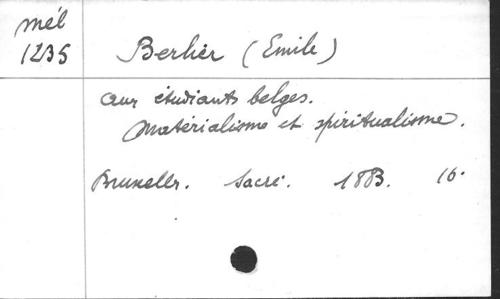 mél
1235
Berlier (Emile)
aux étudiants belges.
Matérialisme et spiritualisme.
Bruxelles. Sacré. 1883. 16.